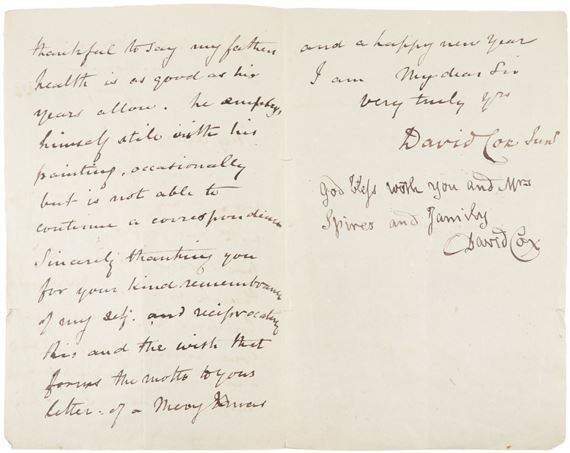 thankful to say my fathers
health is as good as his
years allow. he employs
himself still with his
painting, occasionally
but is not able to
continue a correspondence
Sincerely thanking you
for your kind remembrance
of my self. and reciprocating
this and the wish that
forms the motto to your
letter. of a Merry Xmas
and a happy new Year
I am My dear Sir
very truly yrs
David Cox Junr
God bless you and Mrs
Spires and Family
David Cox